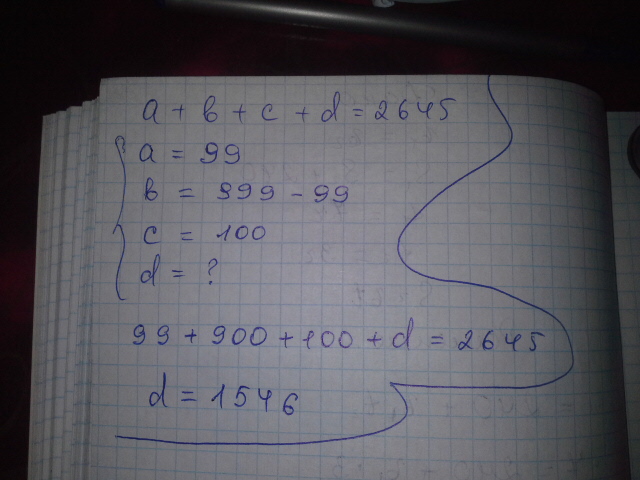 a + b + c + d = 2645
a = 99
b = 999 - 99
c = 100
d = ?
99 + 900 + 100 + d = 2645
d = 1546